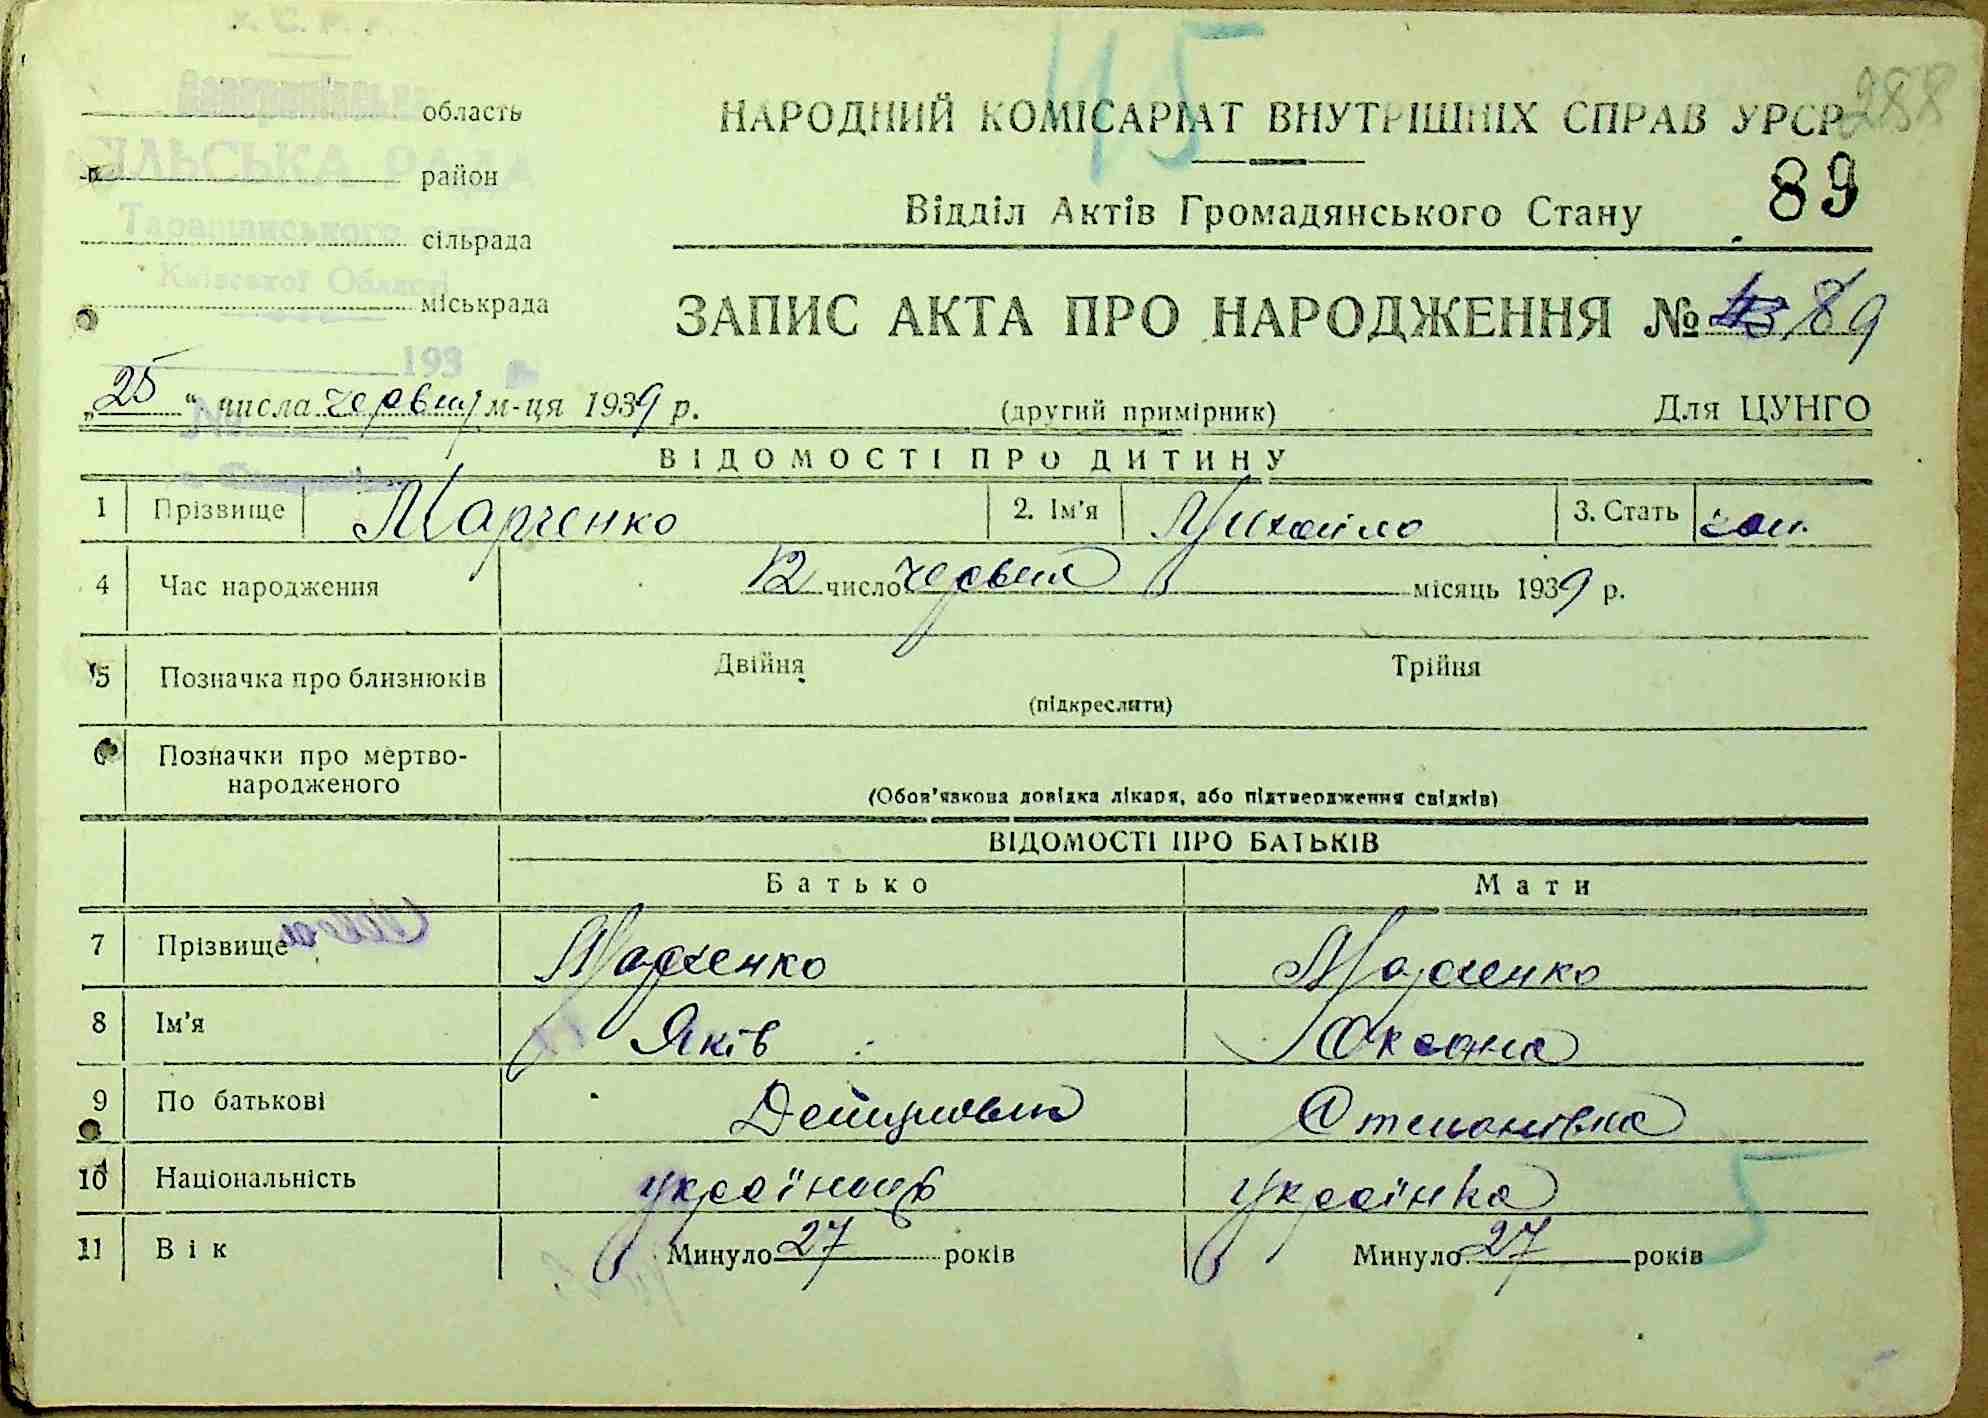 У. С. Р. Р.
область
СІЛЬСЬКА РАДА
район
Таращанського
сільрада
Київської Області
міськрада
193
№
45
288
НАРОДНИЙ КОМІСАРІАТ ВНУТРІШНІХ СПРАВ УРСР
Відділ Актів Громадянського Стану 89
ЗАПИС АКТА ПРО НАРОДЖЕННЯ № 89
„25“ числа червня м-ця 1939 р. (другий примірник) Для ЦУНГО
ВІДОМОСТІ ПРО ДИТИНУ
1 Прізвище Марченко 2. Ім'я Михайло 3. Стать чол.
4 Час народження 12 число червня місяць 1939 р.
5 Позначка про близнюків Двійня Трійня
(підкреслити)
6 Позначки про мертво-
народженого
(Обов'язкова довідка лікаря, або підтвердження свідків)
ВІДОМОСТІ ПРО БАТЬКІВ
Батько Мати
7 Прізвище Марченко Марченко
8 Ім'я Яків Оксана
9 По батькові Степанівна
10 Національність українець українка
11 Вік Минуло 27 років Минуло 27 років
5